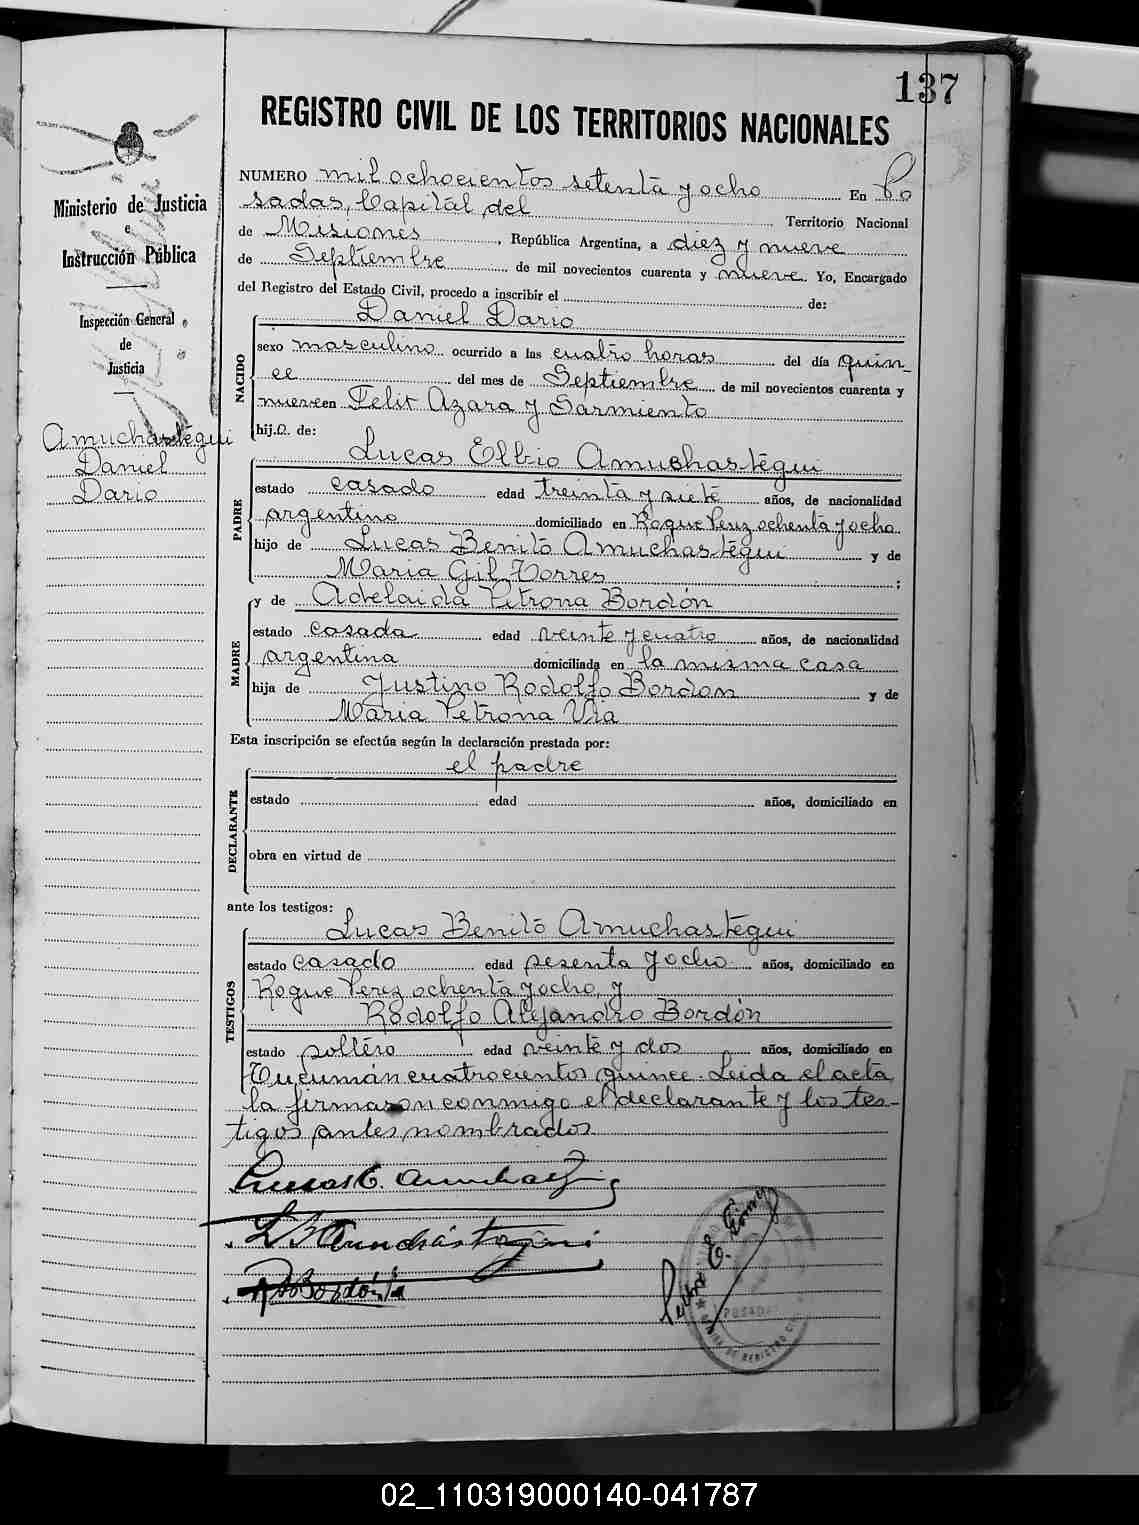 137
REGISTRO CIVIL DE LOS TERRITORIOS NACIONALES
Ministerio de Justicia
e
Instrucción Pública
Inspección General
de
Justicia
Amuchastegui
Daniel
Dario
NUMERO mil ochocientos setenta y ocho En Po
sadas, Capital del Territorio Nacional
de Misiones, República Argentina, a diez y nueve
de Septiembre de mil novecientos cuarenta y nueve Yo, Encargado
del Registro del Estado Civil, procedo a inscribir el de:
NACIDO
Daniel Dario
sexo masculino ocurrido a las cuatro horas del día quin
ce del mes de Septiembre de mil novecientos cuarenta y
nueve en Felix Azara y Sarmiento
hij.o. de:
PADRE
Lucas Elbio Amuchastegui
estado casado edad treinta y siete años, de nacionalidad
argentino domiciliado en Roque Perez ochenta y ocho
hijo de Lucas Benito Amuchastegui y de
Maria Gil Torres ;
MADRE
y de Adelaida Petrona Bordón
estado casada edad veinte y cuatro años, de nacionalidad
argentina domiciliada en la misma casa
hija de Justino Rodolfo Bordon y de
Maria Petrona Via
Esta inscripción se efectúa según la declaración prestada por:
DECLARANTE
el padre
estado edad años, domiciliado en
obra en virtud de
ante los testigos:
TESTIGOS
Lucas Benito Amuchastegui
estado casado edad sesenta y ocho años, domiciliado en
Roque Perez ochenta y ocho, y
Rodolfo Alejandro Bordón
estado soltero edad veinte y dos años, domiciliado en
Tucumán cuatrocientos quince. Leida el acta
la firmaron conmigo el declarante y los tes-
tigos antes nombrados.
Lucas E. Amuchastegui
L B Amuchástegui
POSADAS
02_110319000140-041787